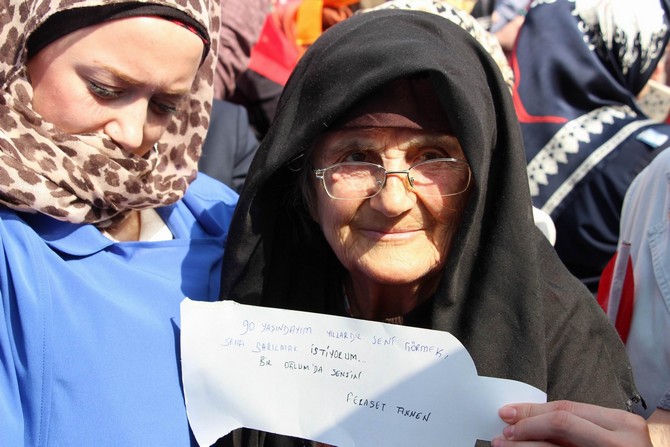 90 YAŞINDAYIM YILLARDIR SENİ GÖRMEK,
SANA SARILMAK İSTİYORUM..
BİR OĞLUM'DA SENSİN
FERASET